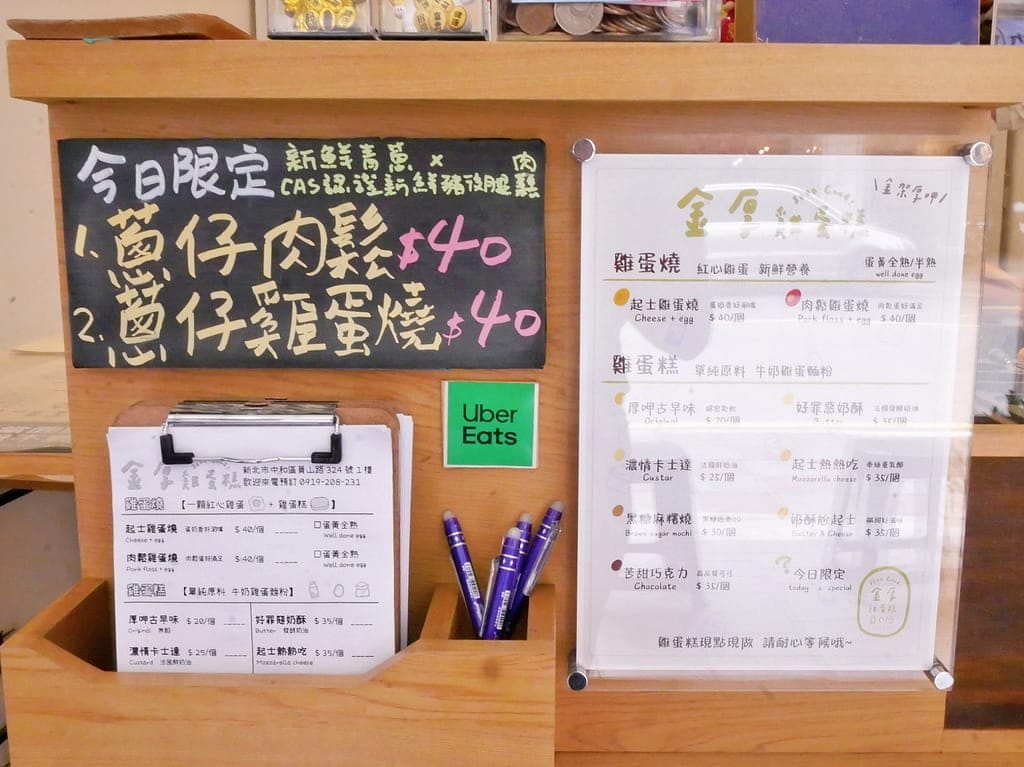 今日限定
新鮮青蔥 x 肉鬆
CAS認證新鮮豬後腿
1. 蔥仔肉鬆 $40
2. 蔥仔雞蛋燒 $40
Uber
Eats
金厚雞蛋糕
新北市中和區員山路324號1樓
歡迎來電預訂 0919-208-231
雞蛋燒 【一顆紅心雞蛋 + 雞蛋糕】
起士雞蛋燒 $40/個 □蛋黃全熟
Cheese + egg Well done egg
肉鬆雞蛋燒 $40/個 □蛋黃全熟
Pork floss + egg Well done egg
雞蛋糕 【單純原料 牛奶雞蛋麵粉】
厚呷古早味 $20/個 好罪惡奶酥 $35/個
Original Butter 發酵奶油
濃情卡士達 $25/個 起士熱熱吃 $35/個
Custard 法國鮮奶油 Mozzarella cheese
Good!
金厚雞蛋糕
\金架厚呷/
雞蛋燒 紅心雞蛋 新鮮營養 蛋黃全熟/半熟
well done egg
起士雞蛋燒 肉鬆雞蛋燒
Cheese + egg $40/個 Pork floss + egg $40/個
雞蛋糕 單純原料 牛奶雞蛋麵粉
厚呷古早味 好罪惡奶酥 法國發酵奶油
Original $20/個 Butter $35/個
濃情卡士達 法國鮮奶油 起士熱熱吃
Custar $25/個 Mozzarella cheese $35/個
黑糖麻糬燒 奶酥尬起士
Brown sugar mochi $30/個 Butter & Cheese $35/個
苦甜巧克力 今日限定
Chocolate $35/個 today's special
雞蛋糕現點現做 請耐心等候哦~